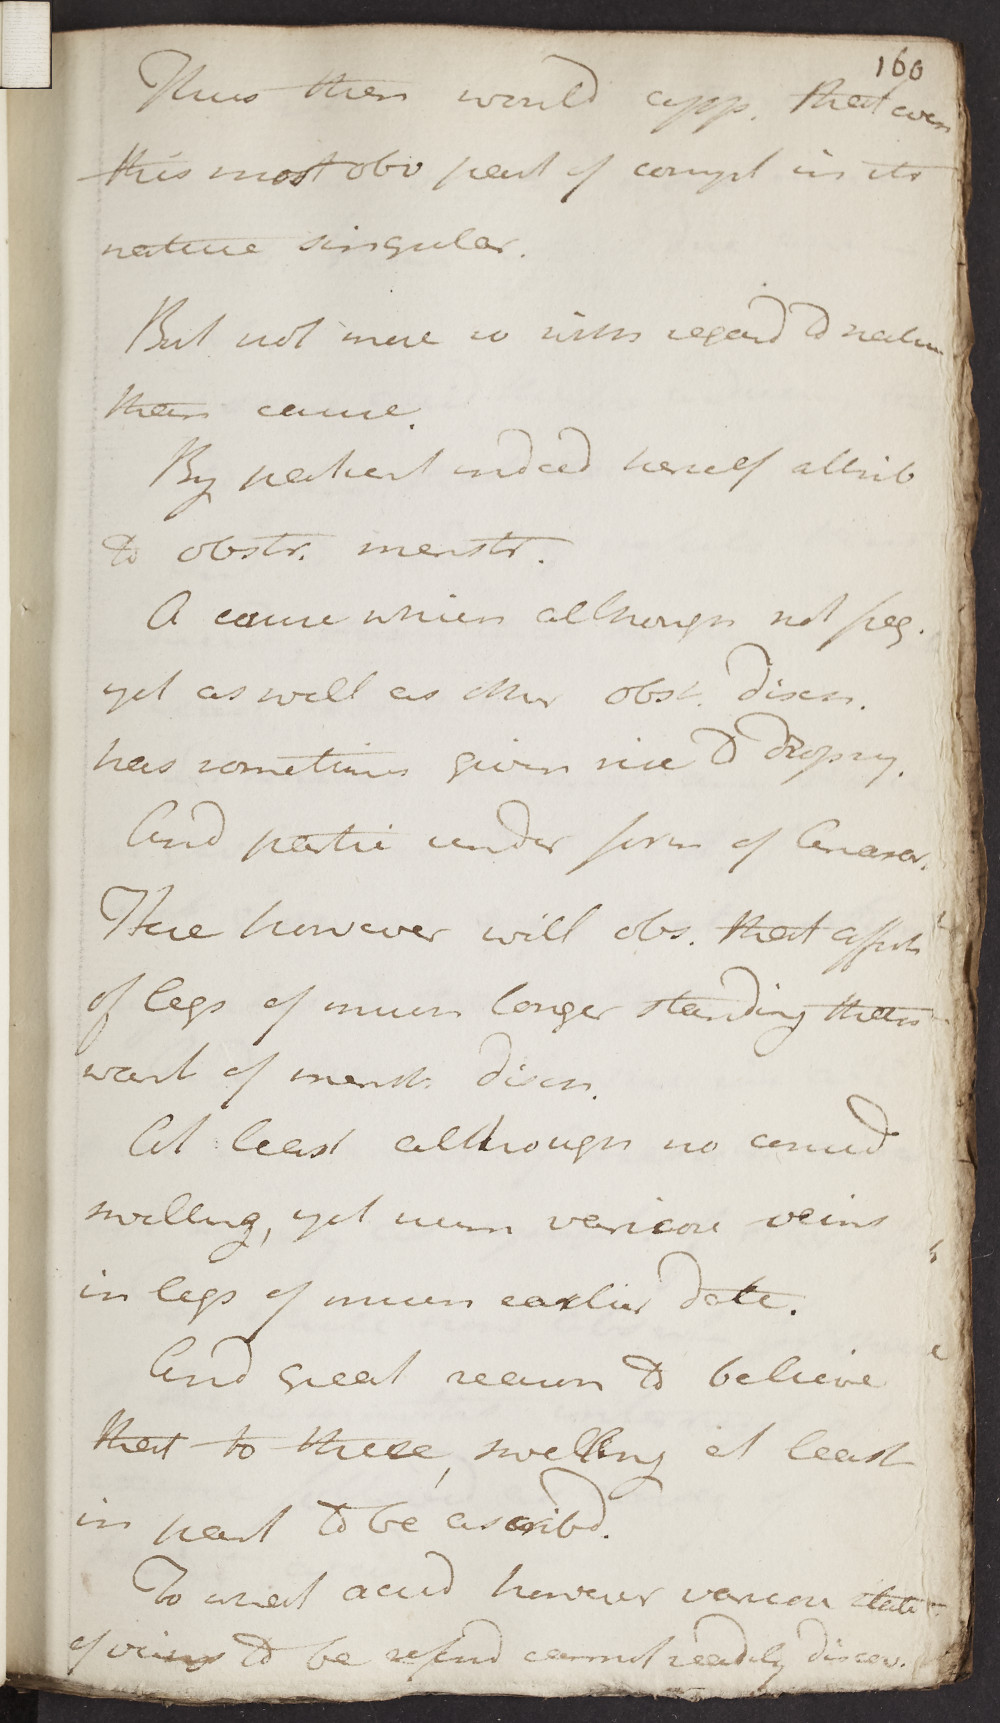 160
Thus then would app. that even
this most obv part of compl in its
nature singular.
But not more so with regard to nature
than cause.
By patient indeed herself attrib
to obstr. menstr.
A cause which although not freq.
yet as well as other obst. disch.
has sometimes given rise to dropsy.
And partic under form of Anasar.
Here however will obs. that affect
of legs of much longer standing than
want of menst. disch.
At least although no consid
swelling, yet much varicose veins
in legs of much earlier date.
And great reason to believe
that to these, swelling at least
in part to be ascribd.
To what accid however varicou state
of veins to be referd cannot readily discov.